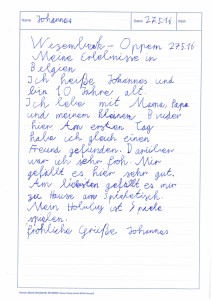 Johannes 27.5.16
Wezembeek-Oppem 27.5.16
Meine Erlebnisse in
Belgien
Ich heiße Johannes und
bin 10 Jahre alt.
Ich lebe mit Mama, Papa
und meinen kleinen Bruder
hier. Am ersten Tag
habe ich gleich einen
Freund gefunden. Darüber
war ich sehr froh. Mir
gefällt es hier sehr gut.
Am liebsten gefällt es mir
zu Hause am
Mein ist Spiele
spielen.
fröhliche Grüße Johannes